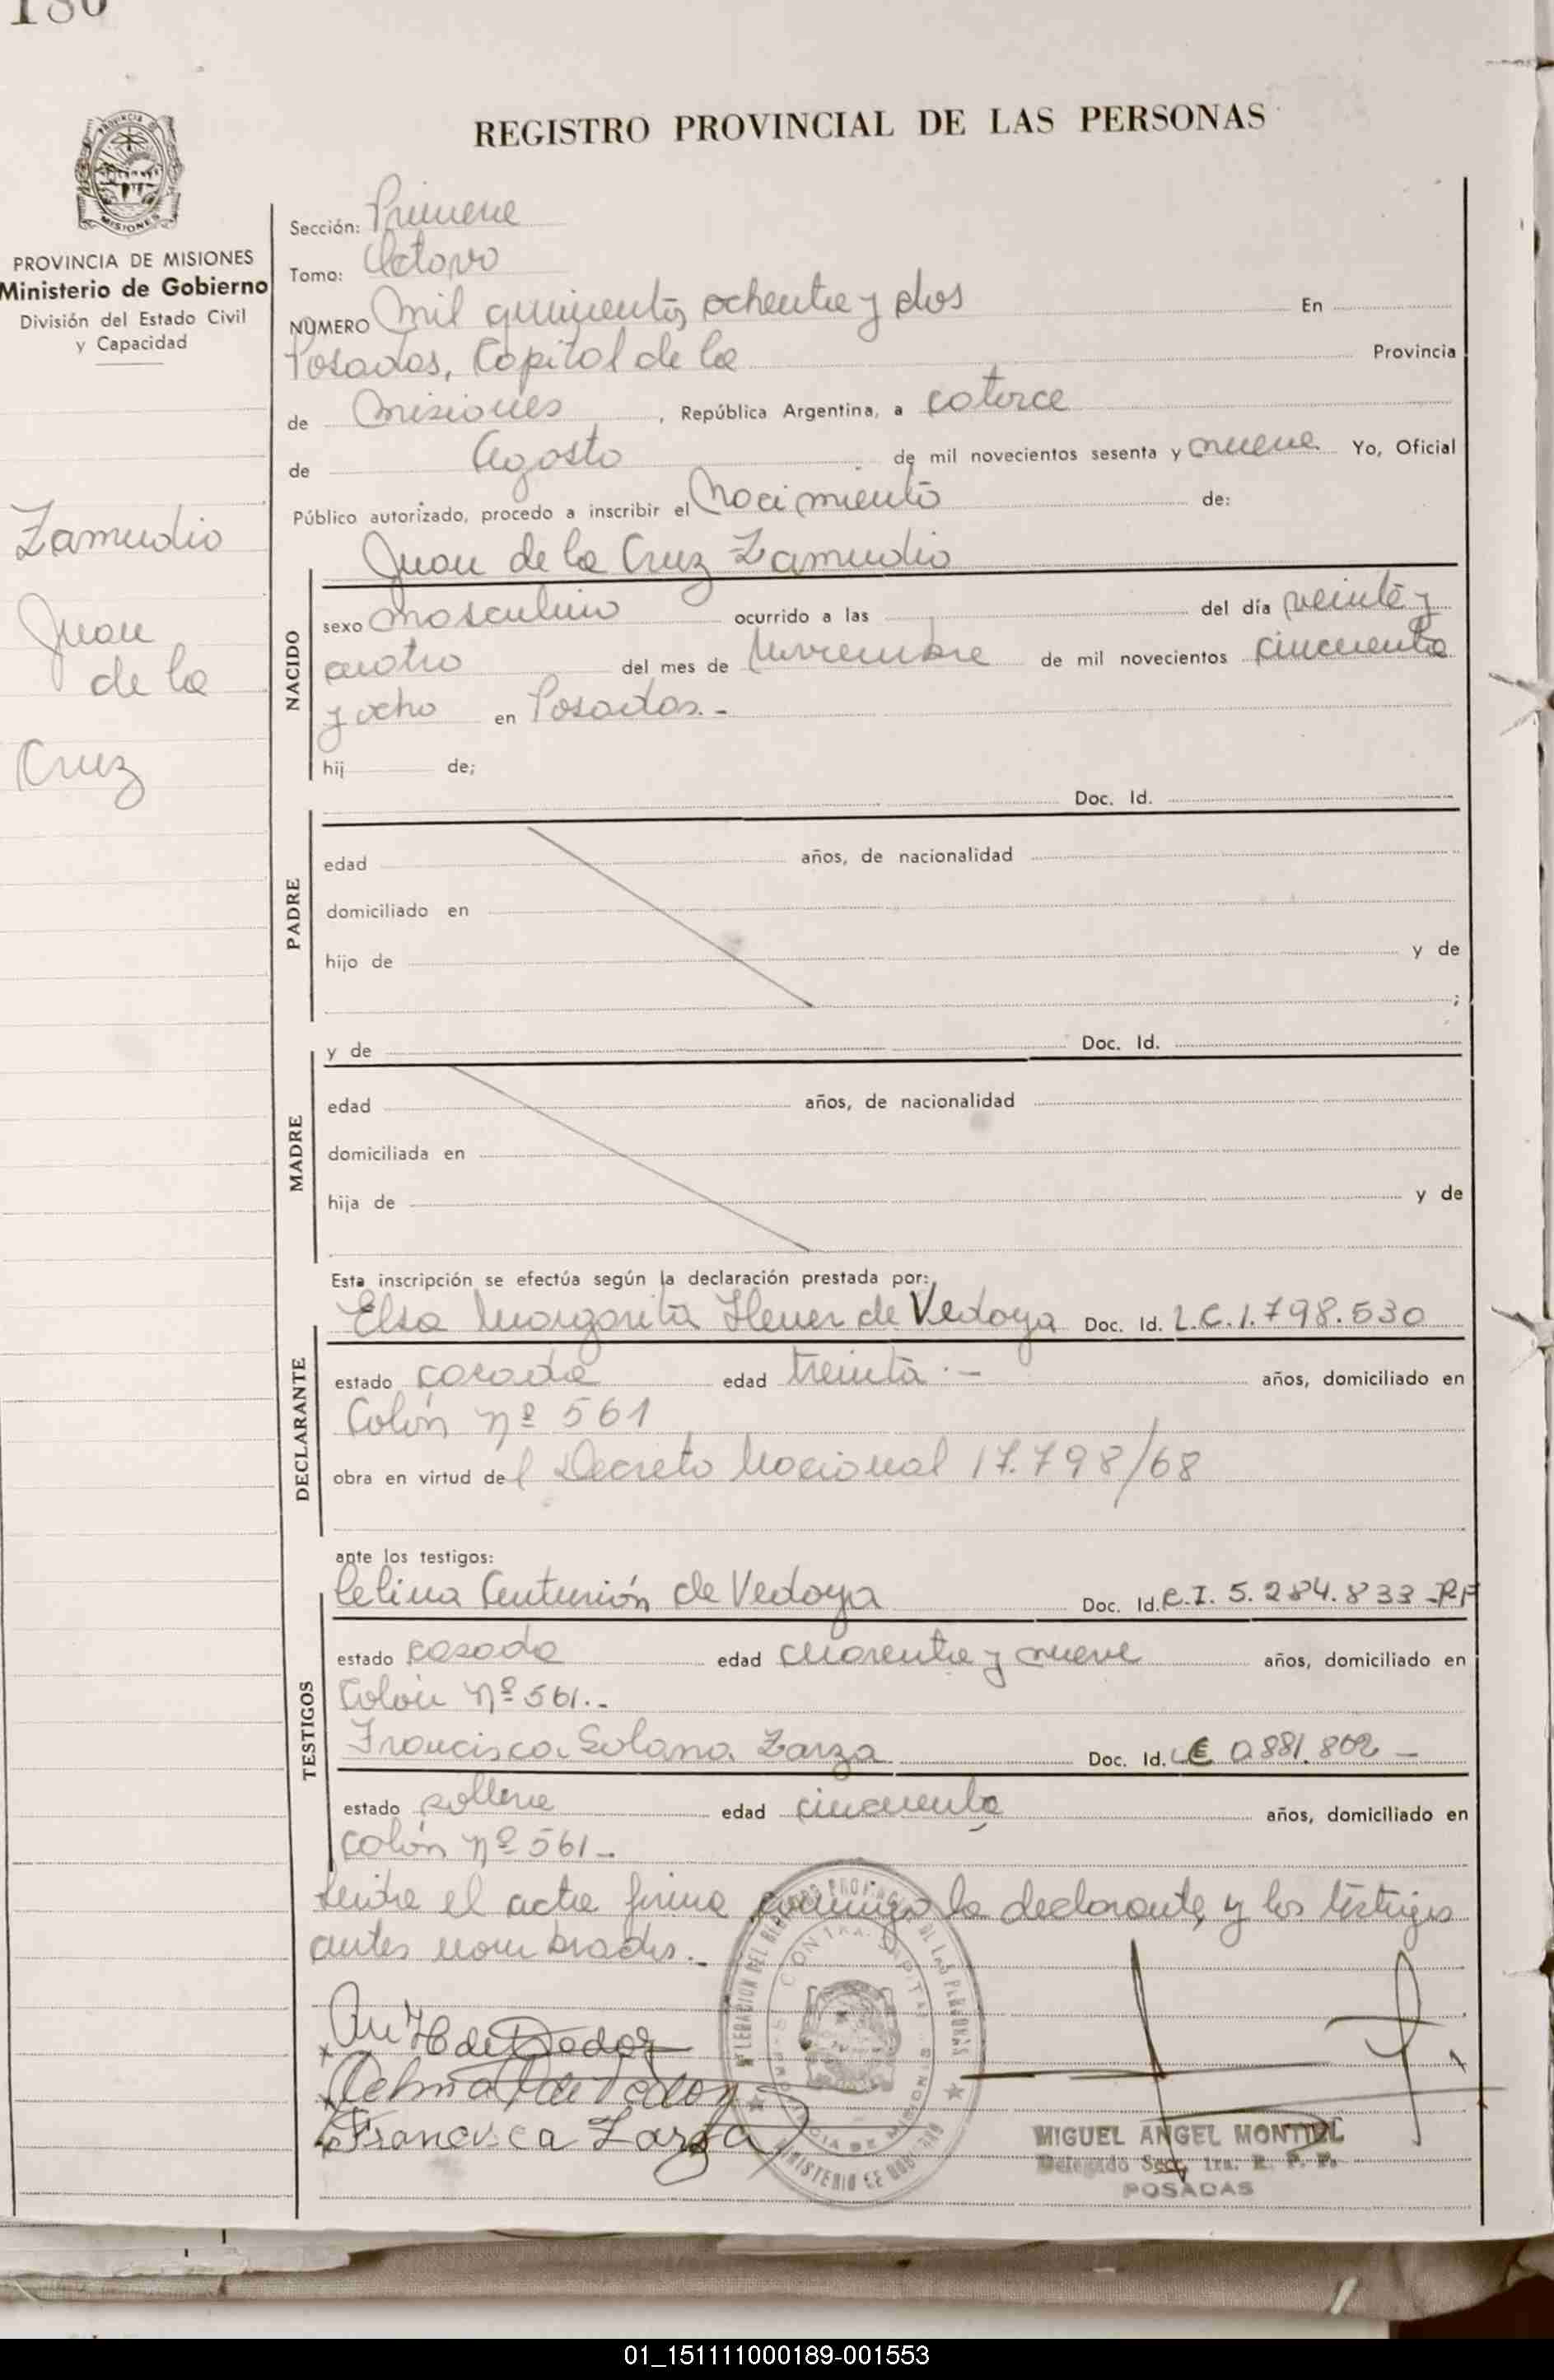 180
PROVINCIA DE MISIONES
MISIONES
PROVINCIA DE MISIONES
Ministerio de Gobierno
División del Estado Civil
y Capacidad
Zamudio
Juan
de la
Cruz
REGISTRO PROVINCIAL DE LAS PERSONAS
Sección: Primera
Tomo: Octavo
NÚMERO Mil quinientos ochenta y dos En
Posadas, Capital de la Provincia
de Misiones, República Argentina, a catorce
de Agosto de mil novecientos sesenta y nueve Yo, Oficial
Público autorizado, procedo a inscribir el Nacimiento de:
Juan de la Cruz Zamudio
NACIDO
sexo masculino ocurrido a las del día veinte y
cuatro del mes de Noviembre de mil novecientos cincuenta
y ocho en Posadas.-
hij de;
Doc. Id.
PADRE
edad años, de nacionalidad
domiciliado en
hijo de y de
;
MADRE
y de Doc. Id.
edad años, de nacionalidad
domiciliada en
hija de y de
Esta inscripción se efectúa según la declaración prestada por:
Elsa Margarita de Vedoya Doc. Id. L.C.1.798.530
DECLARANTE
estado casada edad treinta.- años, domiciliado en
Colón nº 561
obra en virtud del Decreto Nacional 17.798/68
ante los testigos:
Celina Centurión de Vedoya Doc. Id. C.I. 5.284.833-P.F
TESTIGOS
estado casada edad cuarenta y nueve años, domiciliado en
Colón Nº 561.-
Francisca Solana Zarza Doc. Id. 0.881.802-
estado soltera edad cincuenta años, domiciliado en
Colón nº 561-
Leída el acta firma conmigo la declarante y los testigos
antes nombrados.-
Francisca Zarza
MIGUEL ANGEL MONTIEL
Delegado Sec. 1ra. R. P. P.
POSADAS
01_151111000189-001553